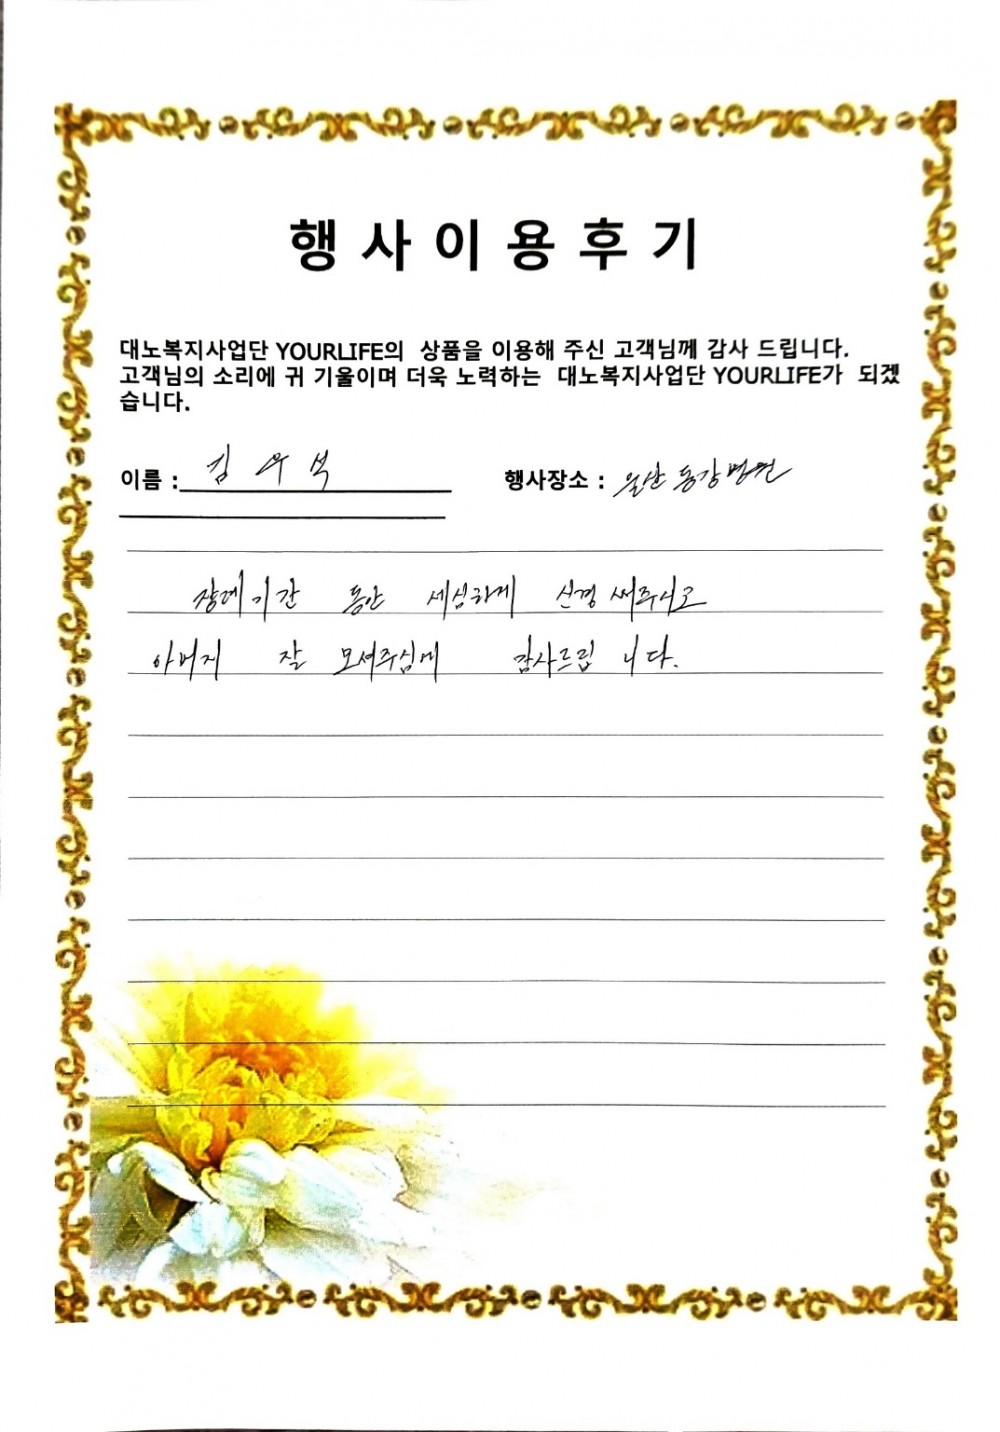 행사이용후기
대노복지사업단 YOURLIFE의 상품을 이용해 주신 고객님께 감사 드립니다.
고객님의 소리에 귀 기울이며 더욱 노력하는 대노복지사업단 YOURLIFE가 되겠
습니다.
이름 : 김 우 석 행사장소 : 울산 동강병원
장례기간 동안 세심하게 신경 써주시고
아버지 잘 모셔주심에 감사드립니다.